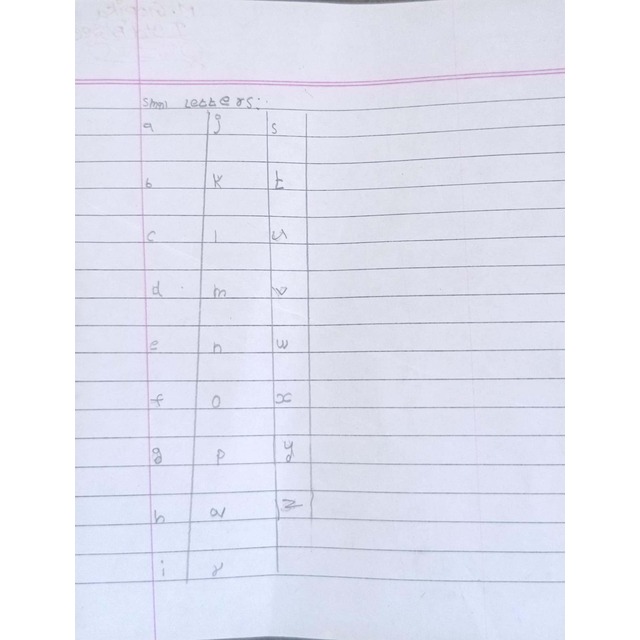 Small Letters:
a j s
b k t
c l u
d m v
e n w
f o x
g p y
h q z
i r